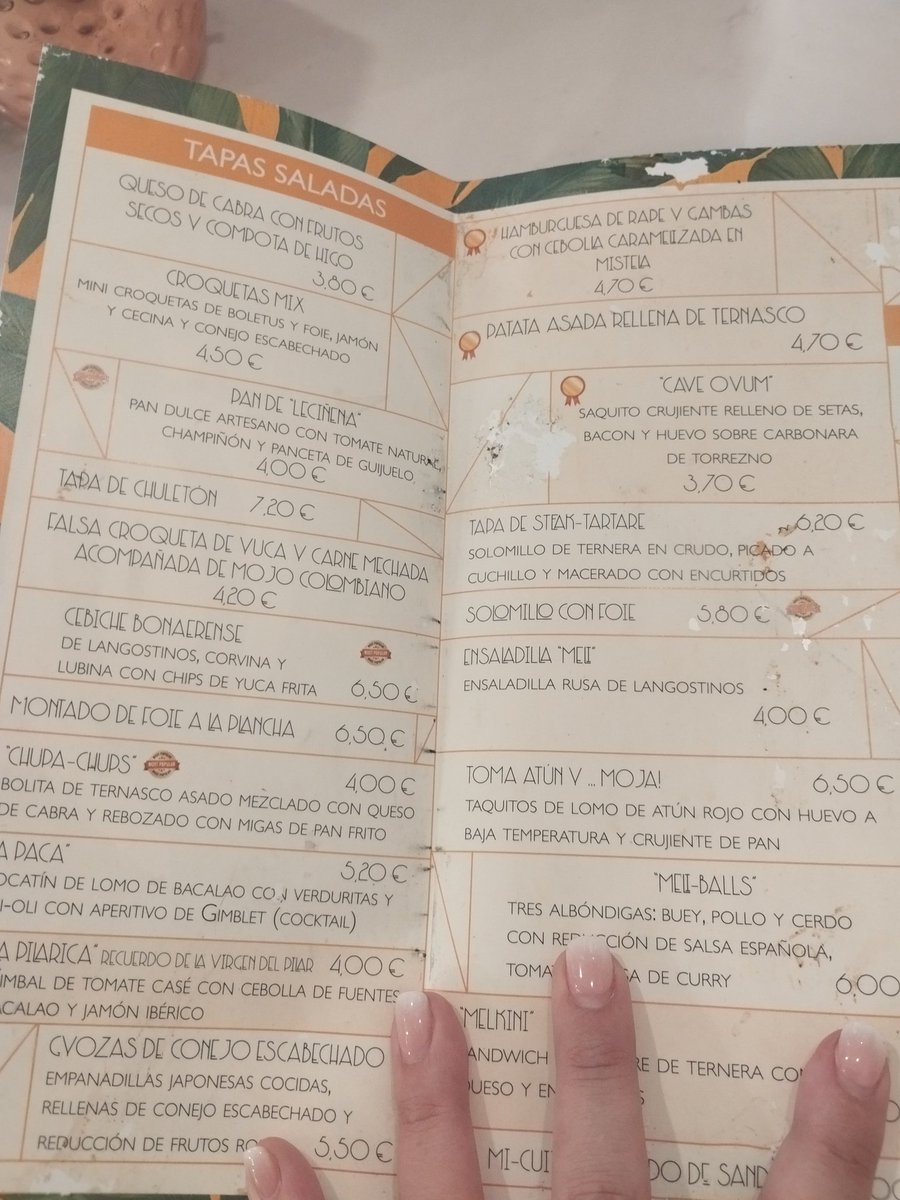 TAPAS SALADAS
QUESO DE CABRA CON FRUTOS
SECOS Y COMPOTA DE HIGO
3,80 €
CROQUETAS MIX
MINI CROQUETAS DE BOLETUS Y FOIE, JAMÓN
Y CECINA Y CONEJO ESCABECHADO
4,50 €
PAN DE "LECIÑENA"
PAN DULCE ARTESANO CON TOMATE NATURAL,
CHAMPIÑÓN Y PANCETA DE GUIJUELO
4,00 €
TAPA DE CHULETÓN 7,20 €
FALSA CROQUETA DE YUCA Y CARNE MECHADA
ACOMPAÑADA DE MOJO COLOMBIANO
4,20 €
CEBICHE BONAERENSE
DE LANGOSTINOS, CORVINA Y
MOST POPULAR
LUBINA CON CHIPS DE YUCA FRITA 6,50 €
MONTADO DE FOIE A LA PLANCHA 6,50 €
"CHUPA-CHUPS" MOST POPULAR
4,00 €
BOLITA DE TERNASCO ASADO MEZCLADO CON QUESO
DE CABRA Y REBOZADO CON MIGAS DE PAN FRITO
A PACA"
5,20 €
OCATÍN DE LOMO DE BACALAO CON VERDURITAS Y
I-OLI CON APERITIVO DE GIMBLET (COCKTAIL)
A PILARICA" RECUERDO DE LA VIRGEN DEL PILAR 4,00 €
IMBAL DE TOMATE CASÉ CON CEBOLLA DE FUENTES
ACALAO Y JAMÓN IBÉRICO
GYOZAS DE CONEJO ESCABECHADO
EMPANADILLAS JAPONESAS COCIDAS,
RELLENAS DE CONEJO ESCABECHADO Y
REDUCCIÓN DE FRUTOS RO 5,50 €
HAMBURGUESA DE RAPE Y GAMBAS
CON CEBOLLA CARAMELIZADA EN
MISTELA
4,70 €
PATATA ASADA RELLENA DE TERNASCO
4,70 €
"CAVE OVUM"
SAQUITO CRUJIENTE RELLENO DE SETAS,
BACON Y HUEVO SOBRE CARBONARA
DE TORREZNO
3,70 €
TAPA DE STEAK-TARTARE 6,20 €
SOLOMILLO DE TERNERA EN CRUDO, PICADO A
CUCHILLO Y MACERADO CON ENCURTIDOS
SOLOMILLO CON FOIE 5,80 €
ENSALADILLA "MELI"
ENSALADILLA RUSA DE LANGOSTINOS
4,00 €
TOMA ATÚN Y ... MOJA! 6,50 €
TAQUITOS DE LOMO DE ATÚN ROJO CON HUEVO A
BAJA TEMPERATURA Y CRUJIENTE DE PAN
"MELI-BALLS"
TRES ALBÓNDIGAS: BUEY, POLLO Y CERDO
CON REDUCCIÓN DE SALSA ESPAÑOLA,
TOMAT SA DE CURRY 6,00
"MELKINI"
ANDWICH RE DE TERNERA CO
QUESO Y EN S
MI-CUI DO DE SAND